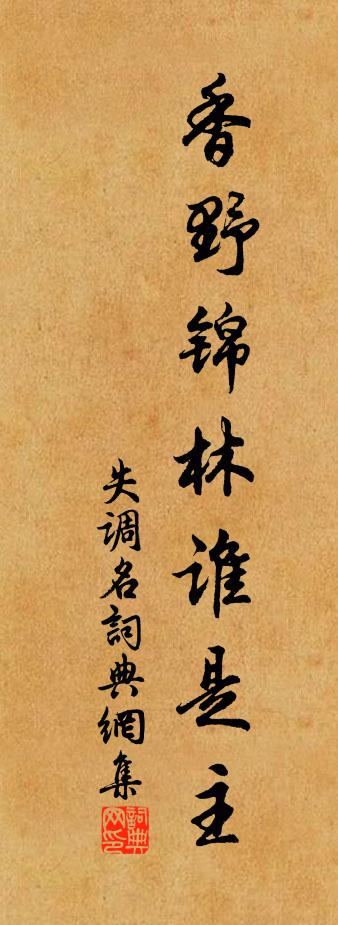 香野锦林谁是主
失调名詞典網集
詞典网印